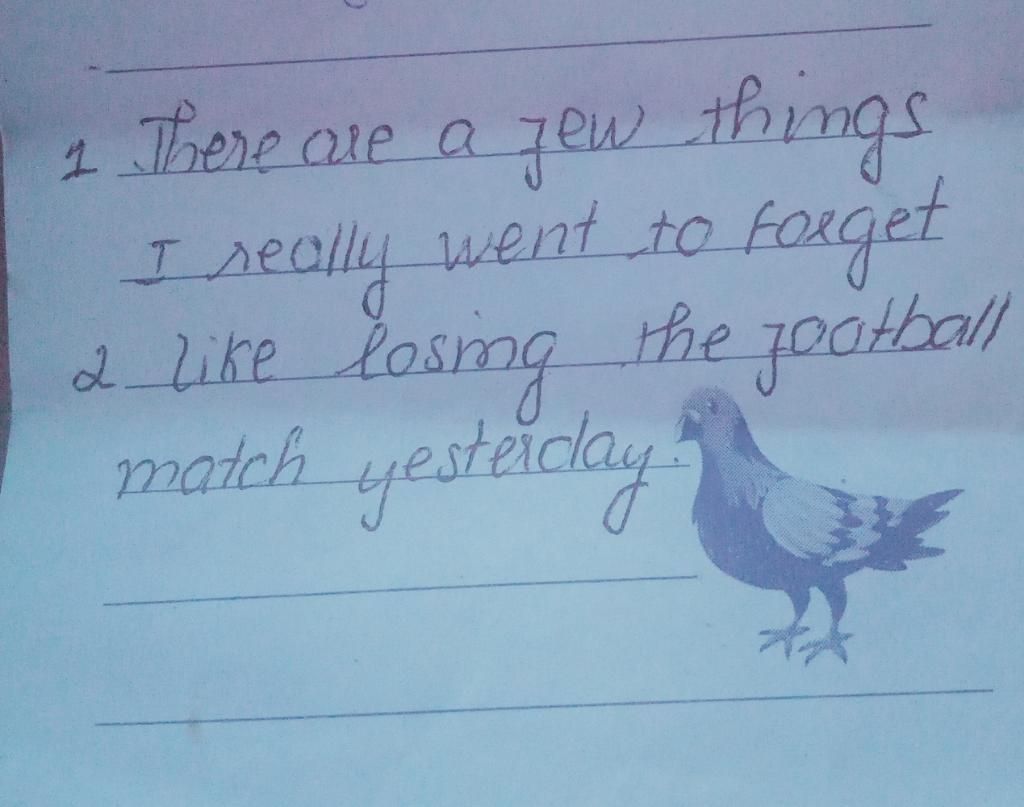 1 There are a few things
I really went to forget
2 like losing the football
match yesterday.